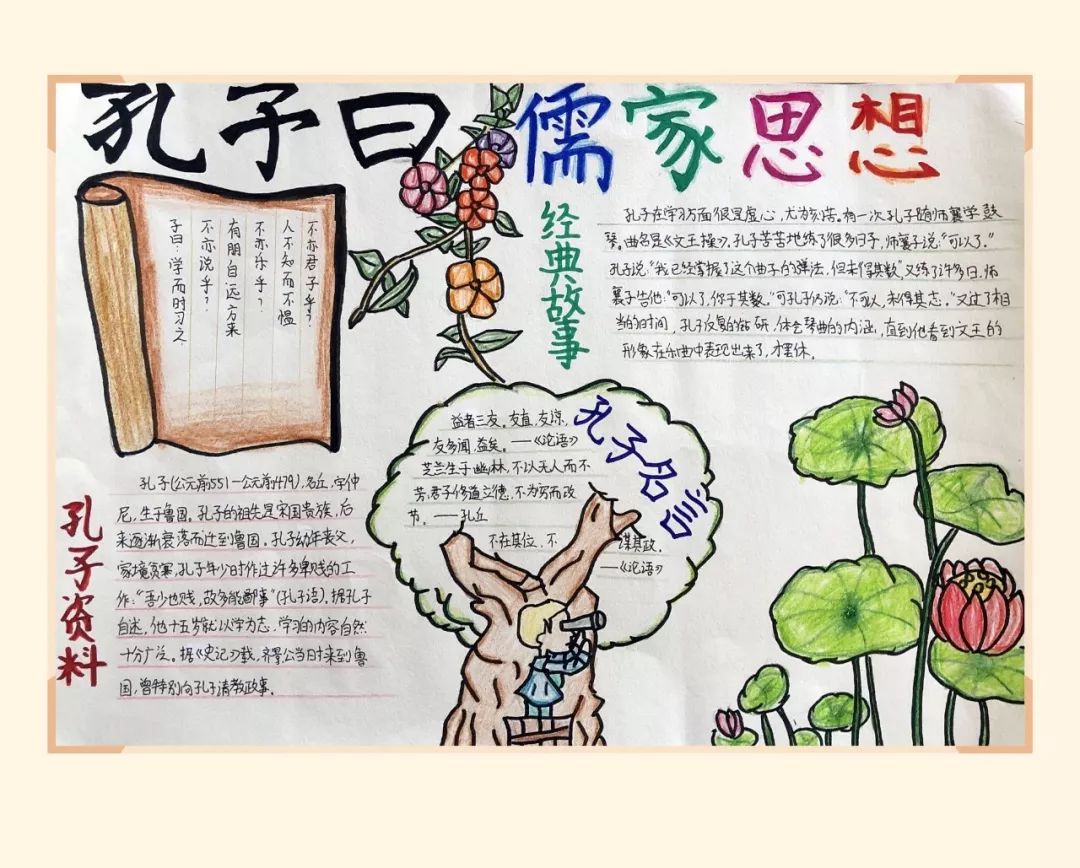 孔子曰 儒家思想
子曰：学而时习之
不亦说乎？
有朋自远方来
不亦乐乎？
人不知而不愠
不亦君子乎？
经典故事
孔子在学习方面很是虚心，尤为刻苦。有一次孔子跟师襄学鼓
琴。曲名是《文王操》。孔子苦苦地练了很多日子，师襄子说：“可以了。”
孔子说：“我已经掌握了这个曲子的弹法，但未得其数”又练了许多日，师
襄子告他：“可以了，你于其数。”可孔子仍说：“不可以，未得其志。”又过了相
当的时间，孔子反复的钻研，体会琴曲的内涵，直到他看到文王的
形象在乐曲中表现出来了，才罢休。
孔子名言
益者三友。友直，友谅，
友多闻，益矣。——《论语》
芝兰生于幽林，不以无人而不
芳，君子修道立德，不为穷而改
节。——孔丘
不在其位，不谋其政。
——《论语》
孔子资料
孔子（公元前551—公元前479），名丘，字仲
尼，生于鲁国。孔子的祖先是宋国贵族，后
来逐渐衰落而迁到鲁国。孔子幼年丧父，
家境贫寒，孔子年少时作过许多卑贱的工
作：“吾少也贱，故多能鄙事”（孔子语）。据孔子
自述，他十五岁就以学为志，学习的内容自然
十分广泛。据《史记》载，齐景公当时来到鲁
国，曾特别向孔子请教政事。